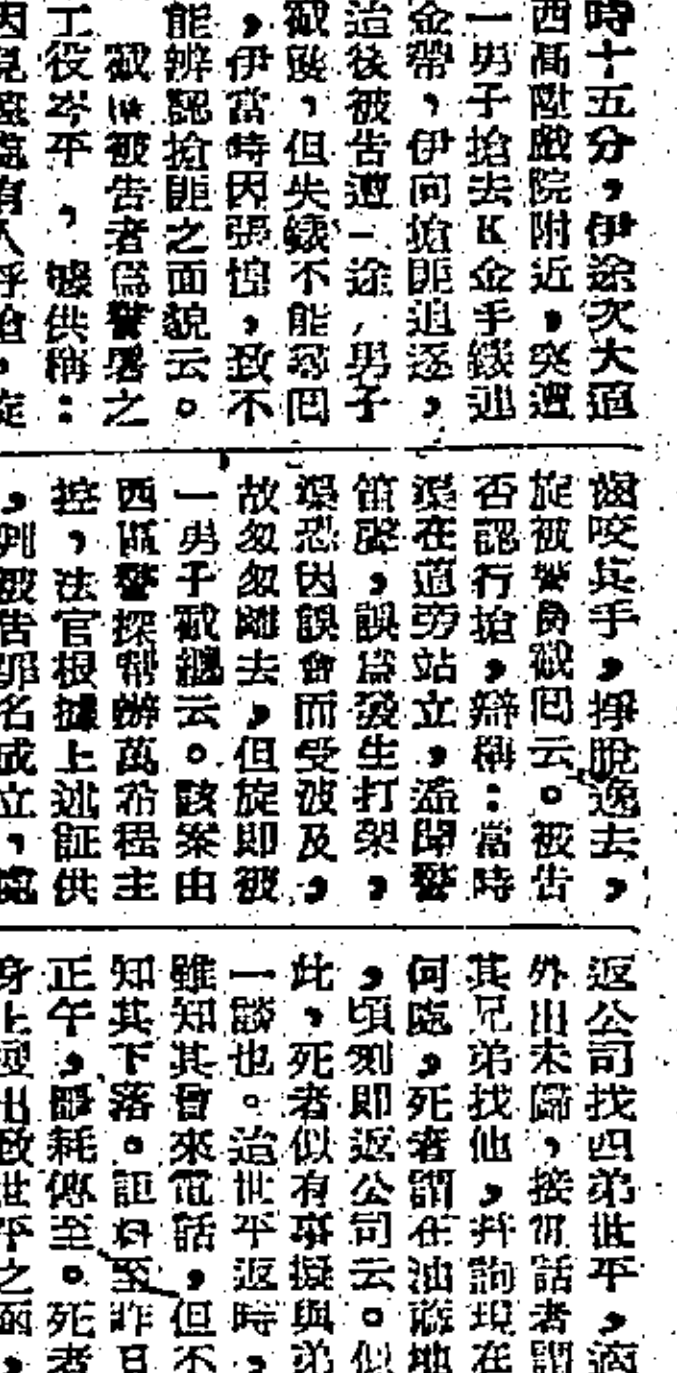 時十五分，伊途次大道
西高陞戲院附近，突遭
一男子搶去K金手鐲連
金帶，伊向搶匪追逐，
追後被告遭一途人男子
截獲，但失鐲不能尋回
，伊當時因張惶，致不
能辨認搶匪之面貌云。
截被告者爲警署之
工役岑平，據供稱：
因見有人呼搶，旋
齒咬其手，掙脫逸去，
旋被警員截回云。被告
否認行搶，辯稱：當時
渠在道旁站立，聞警
笛聲，誤爲發生打架，
渠恐因誤會而受波及，
故匆匆離去，但旋即被
一男子截獲云。該案由
西區警探幫辦萬希程主
控，法官根據上述証供
，判被告罪名成立，處
返公司找四弟世平，適
外出未歸，接電話者謂
其兄弟找他，幷詢現在
何處，死者謂在油蔴地
，頃刻即返公司云。似
此，死者似有事擬與弟
一談也。迨世平返時，
雖知其曾來電話，但不
知其下落。詎料至昨日
正午，噩耗傳至。死者
身上搜出致世平之函，